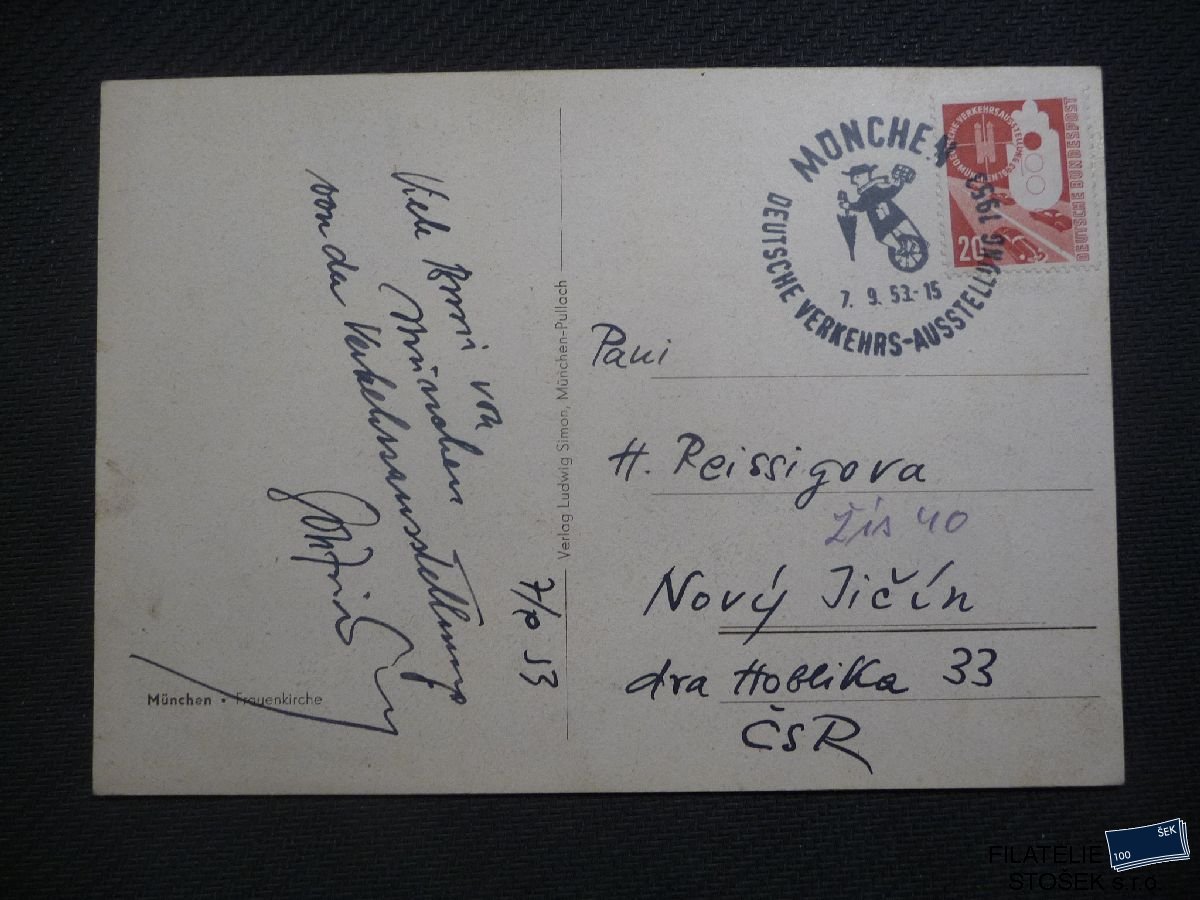 Viele Grüsse von
München
von der Verkehrsausstellung
7/9 53
München • Frauenkirche
Verlag Ludwig Simon, München-Pullach
MÜNCHEN
DEUTSCHE VERKEHRS-AUSSTELLUNG 1953
7. 9. 53.-15
DEUTSCHE VERKEHRSAUSSTELLUNG
MÜNCHEN 1953
20
DEUTSCHE BUNDESPOST
Pani
H. Reissigova
Žis 40
Nový Jičín
dra Hoblika 33
ČSR
100 ŠEK
FILATELIE
STOŠEK s.r.o.